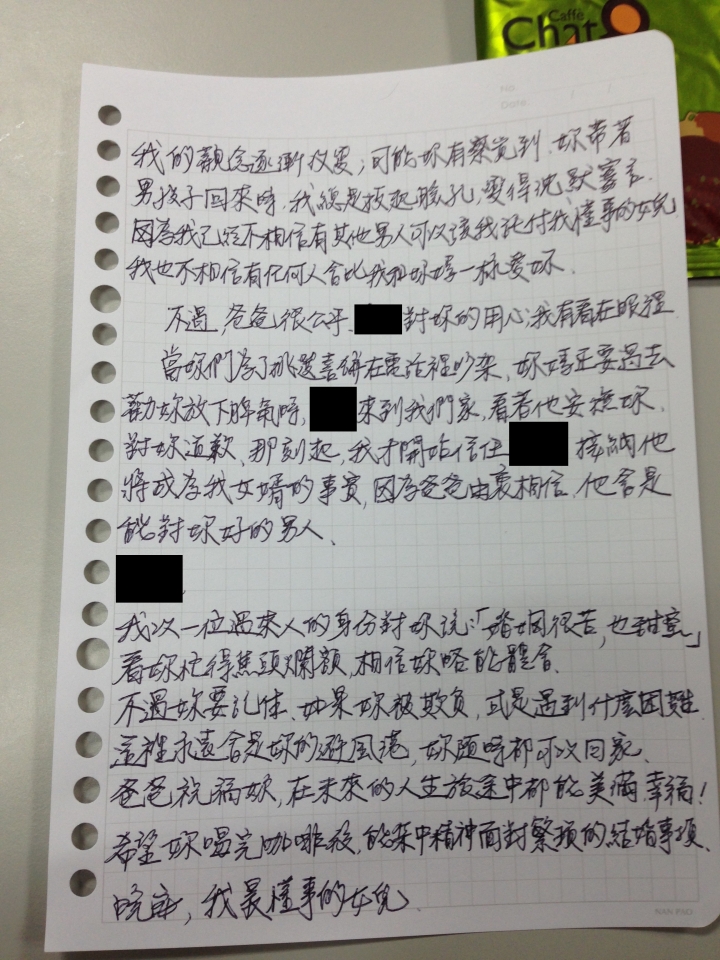 Caffé
Chat
No.
Date
我的觀念逐漸改變,可能妳有察覺到.妳帶著
男孩子回來時,我總是板起臉孔,變得沈默寡言.
因為我已經不相信有其他男人可以讓我託付我懂事的女兒
我也不相信有任何人會比我和妳媽一樣愛妳.
不過,爸爸很公平. 對妳的用心,我有看在眼裡.
當妳們為了挑選喜餅在電話裡吵架,妳媽還要過去
勸妳放下脾氣時, 來到我們家,看著他安撫妳.
對妳道歉、那刻起,我才開始信任 接納他
將成為我女婿的事實,因為爸爸由衷相信,他會是
能對妳好的男人、
我以一位過來人的身份對妳說:「婚姻很苦,也甜蜜」
看妳忙得焦頭爛額,相信妳略能體會.
不過妳要記住、如果妳被欺負,或是遇到什麼困難.
這裡永遠會是妳的避風港,妳隨時都可以回家、
爸爸祝福妳,在未來的人生旅途中都能美滿幸福!
希望妳喝完咖啡後,能集中精神面對繁瑣的結婚事項.
晚安,我最懂事的女兒.
NAN PAO